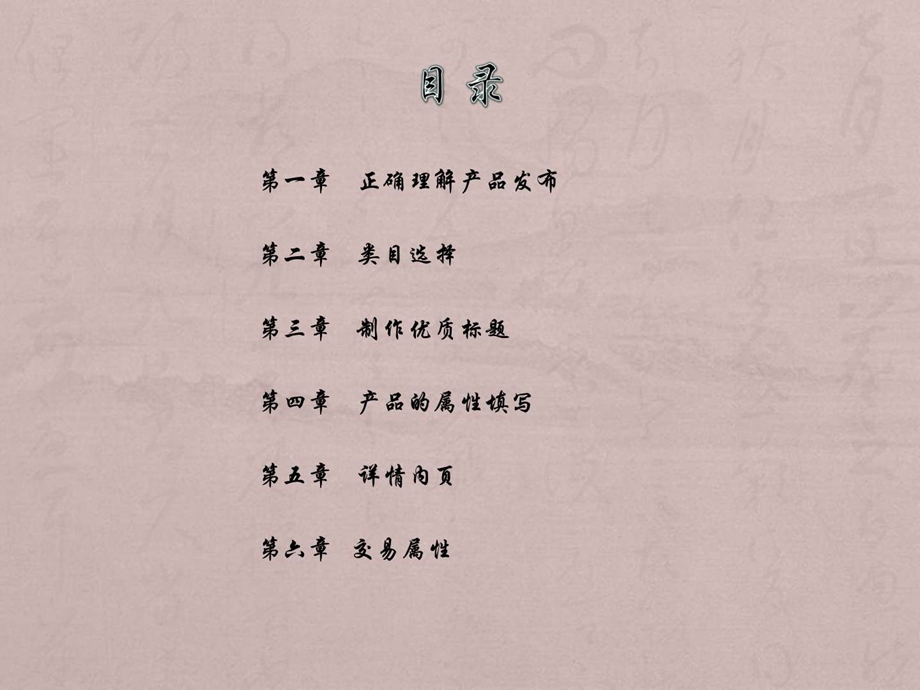 目录
第一章 正确理解产品发布
第二章 类目选择
第三章 制作优质标题
第四章 产品的属性填写
第五章 详情内页
第六章 交易属性